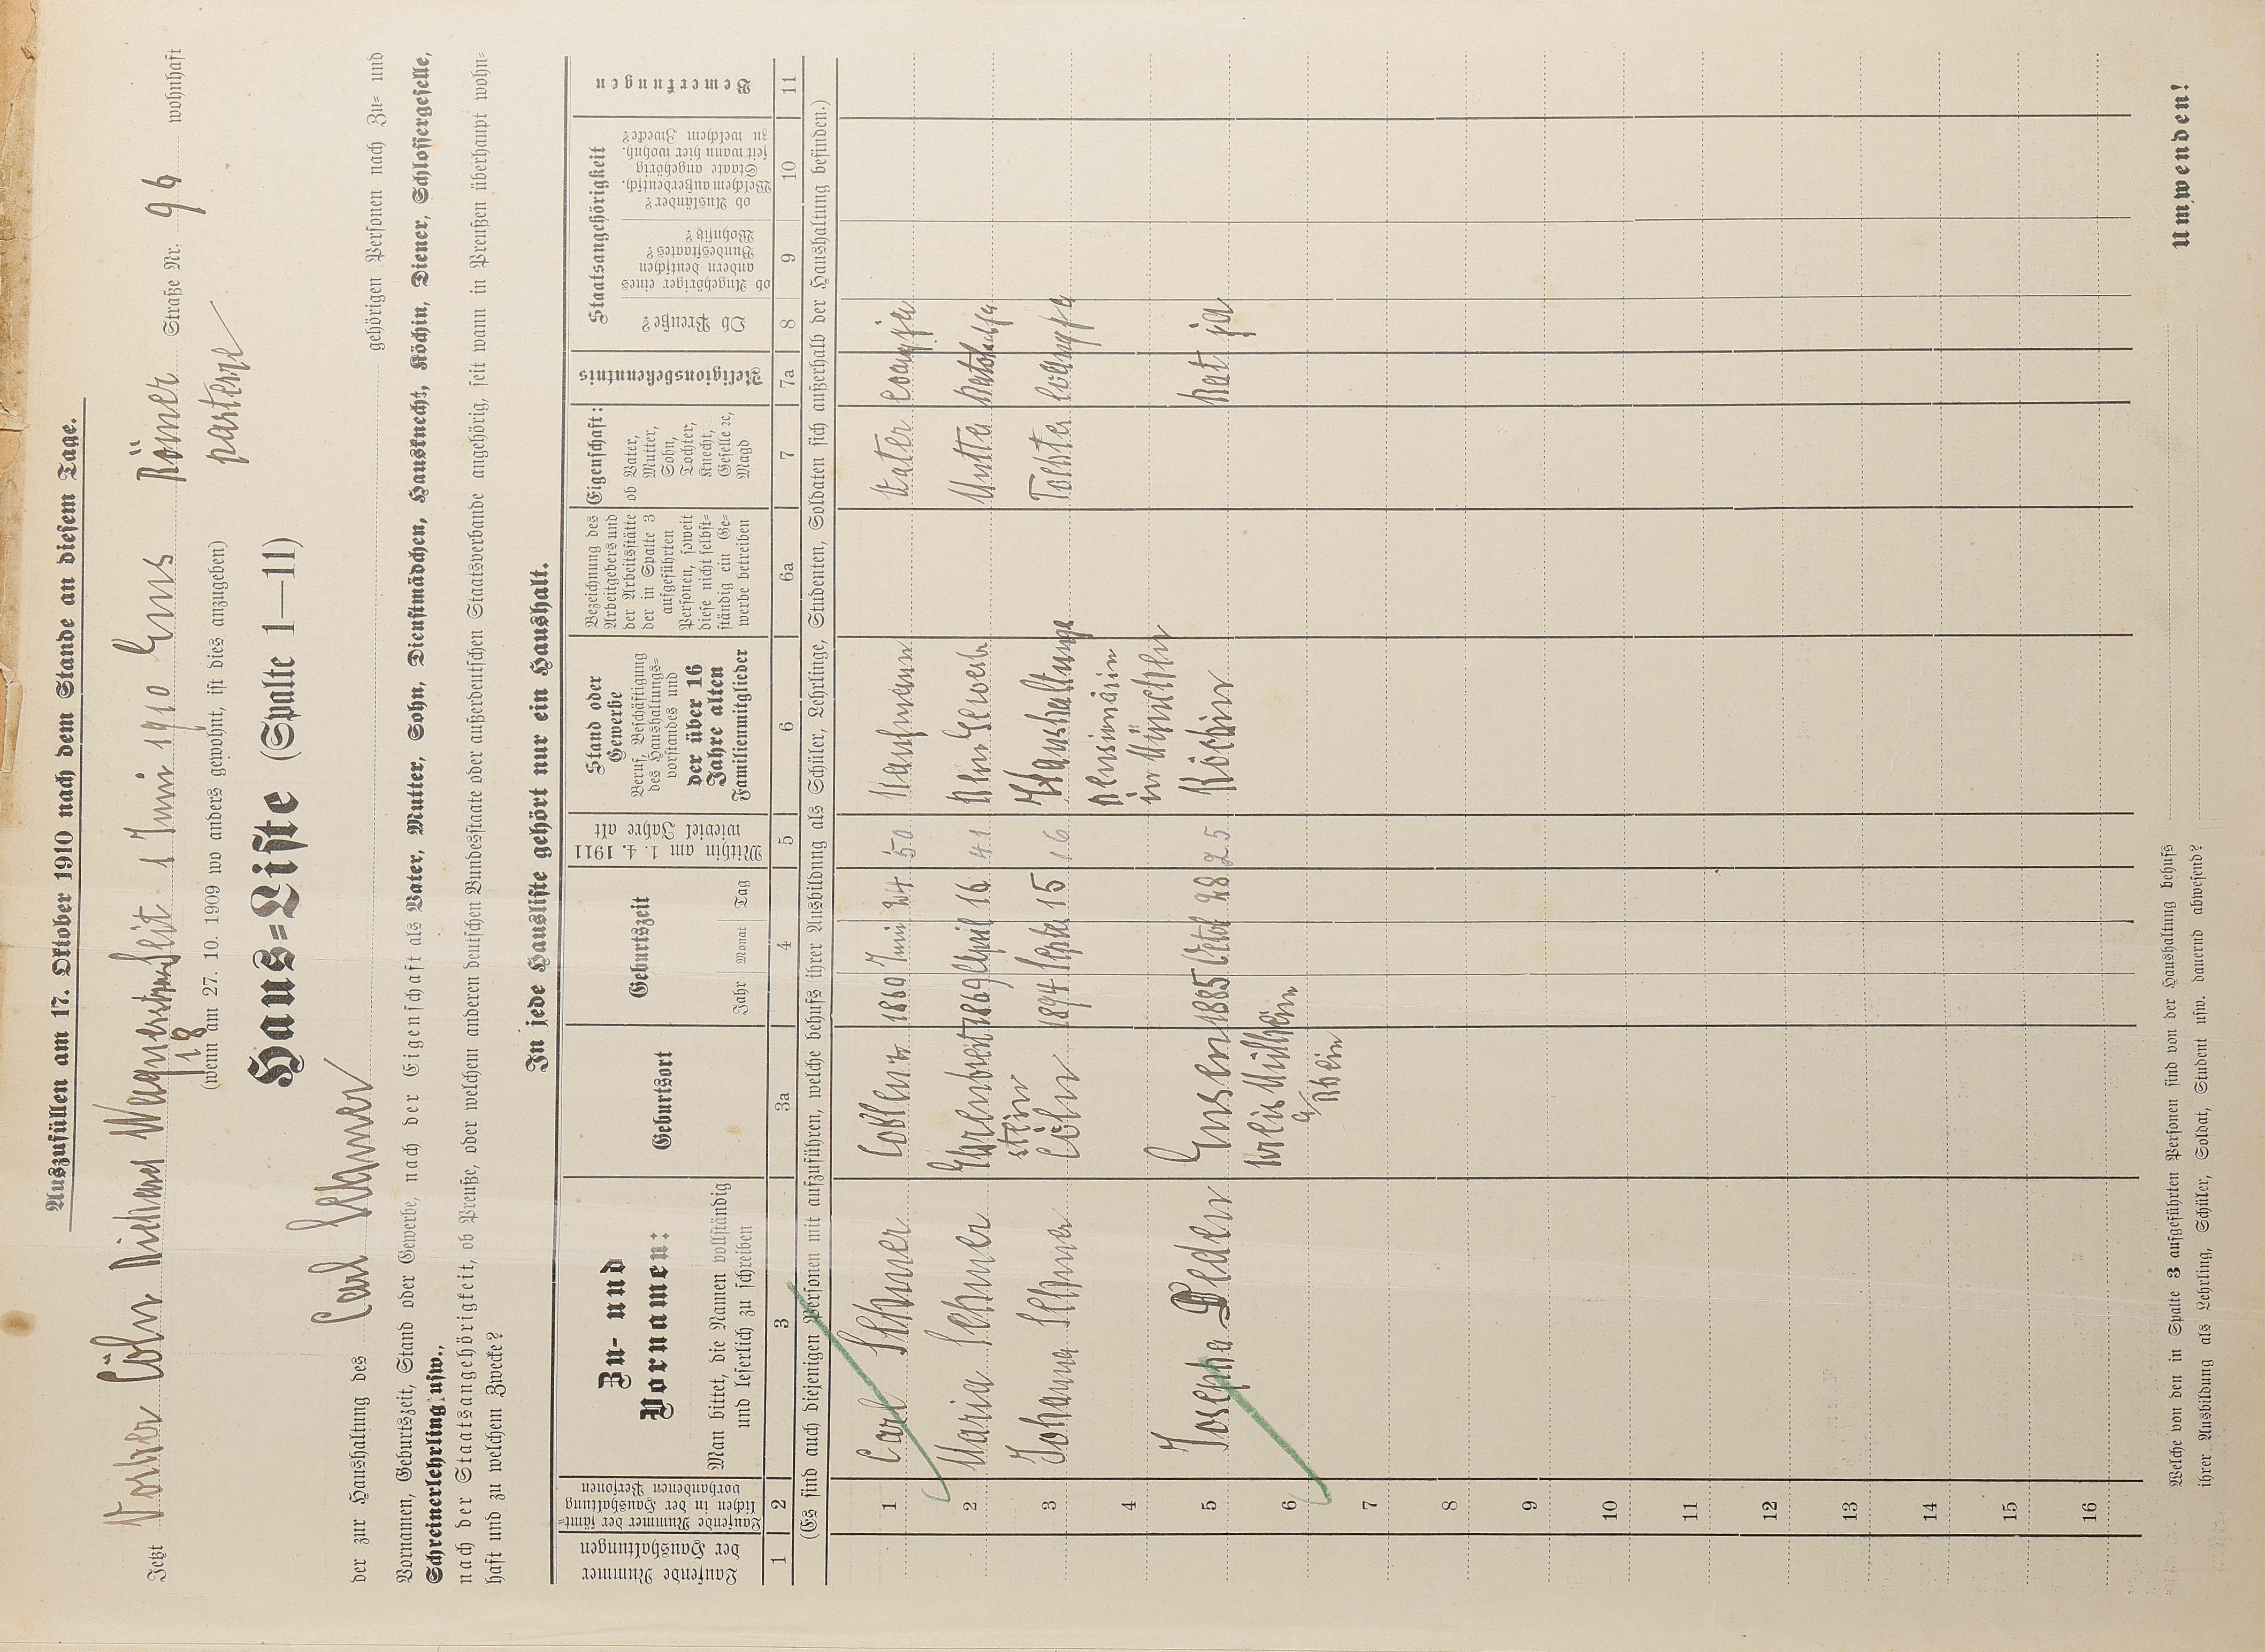 Auszufüllen am 17. Oktober 1910 nach dem Stande an diesem Tage.
Jetzt Vorher Cöln Richard Wagnerstr. Seit 1 Juni 1910 Ems Römer Straße Nr. 96 wohnhaft
18 parterre
(wenn am 27. 10. 1909 wo anders gewohnt, ist dies anzugeben)
Haus=Liste (Spalte 1—11)
der zur Haushaltung des Carl gehörigen Personen nach Zu= und
Vornamen, Geburtszeit, Stand oder Gewerbe, nach der Eigenschaft als Vater, Mutter, Sohn, Dienstmädchen, Hausknecht, Köchin, Diener, Schlossergeselle,
Schreinerlehrling usw.,
nach der Staatsangehörigkeit, ob Preuße, oder welchem anderen deutschen Bundesstaate oder außerdeutschen Staatsverbande angehörig, seit wann in Preußen überhaupt wohn=
haft und zu welchem Zwecke?
In jede Hausliste gehört nur ein Haushalt.
Laufende Nummer der Haushaltungen
Laufende Nummer der sämt=lichen in der Haushaltung vorhandenen Personen
Zu- und Vornamen:
Man bittet, die Namen vollständig und leserlich zu schreiben
Geburtsort
Geburtszeit
Jahr Monat Tag
Mithin am 1. 4. 1911 wieviel Jahre alt
Stand oder Gewerbe
Beruf, Beschäftigung des Haushaltungs=vorstandes und der über 16 Jahre alten Familienmitglieder
Bezeichnung des Arbeitgebers und der Arbeitsstätte der in Spalte 3 aufgeführten Personen, soweit diese nicht selbst=ständig ein Ge=werbe betreiben
Eigenschaft:
ob Vater, Mutter, Sohn, Tochter, Knecht, Geselle ꝛc, Magd
Religionsbekenntnis
Staatsangehörigkeit
Ob Preuße?
ob Angehöriger eines andern deutschen Bundesstaates? Wohnsitz?
ob Ausländer? Welchem außerdeutsch. Staate angehörig seit wann hier wohnh. zu welchem Zwecke?
Bemerkungen
1 2 3 3a 4 5 6 6a 7 7a 8 9 10 11
(Es sind auch diejenigen Personen mit aufzuführen, welche behufs ihrer Ausbildung als Schüler, Lehrlinge, Studenten, Soldaten sich außerhalb der Haushaltung befinden.)
1 Carl Coblenz 1860 Juni 24 50 Kaufmann Vater evang ja
2 Maria Ehrenbreit 1869 April 16 41 Gewerb Mutter kathol ja
stein
3 Johanna Cöln 1894 Septe 15 16 Haushaltungs Tochter evang ja
4 pensionärin
in München
5 Josepha Peden Ensen 1885 Octob 28 25 Köchin kat ja
kreis Mülheim
6 a/ Rhein
7
8
9
10
11
12
13
14
15
16
Welche von den in Spalte 3 aufgeführten Personen sind von der Haushaltung behufs
ihrer Ausbildung als Lehrling, Schüler, Soldat, Student usw. dauernd abwesend?
umwenden!